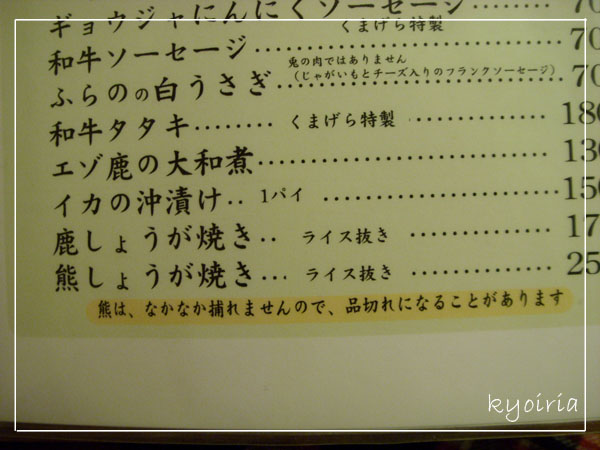 ギョウジャにんにくソーセージ 70
くまげら特製
和牛ソーセージ 70
兎の肉ではありません
ふらのの白うさぎ (じゃがいもとチーズ入りのフランクソーセージ) 70
和牛タタキ くまげら特製 180
エゾ鹿の大和煮 130
イカの沖漬け 1パイ 150
鹿しょうが焼き ライス抜き 17
熊しょうが焼き ライス抜き 25
熊は、なかなか捕れませんので、品切れになることがあります
kyoiria